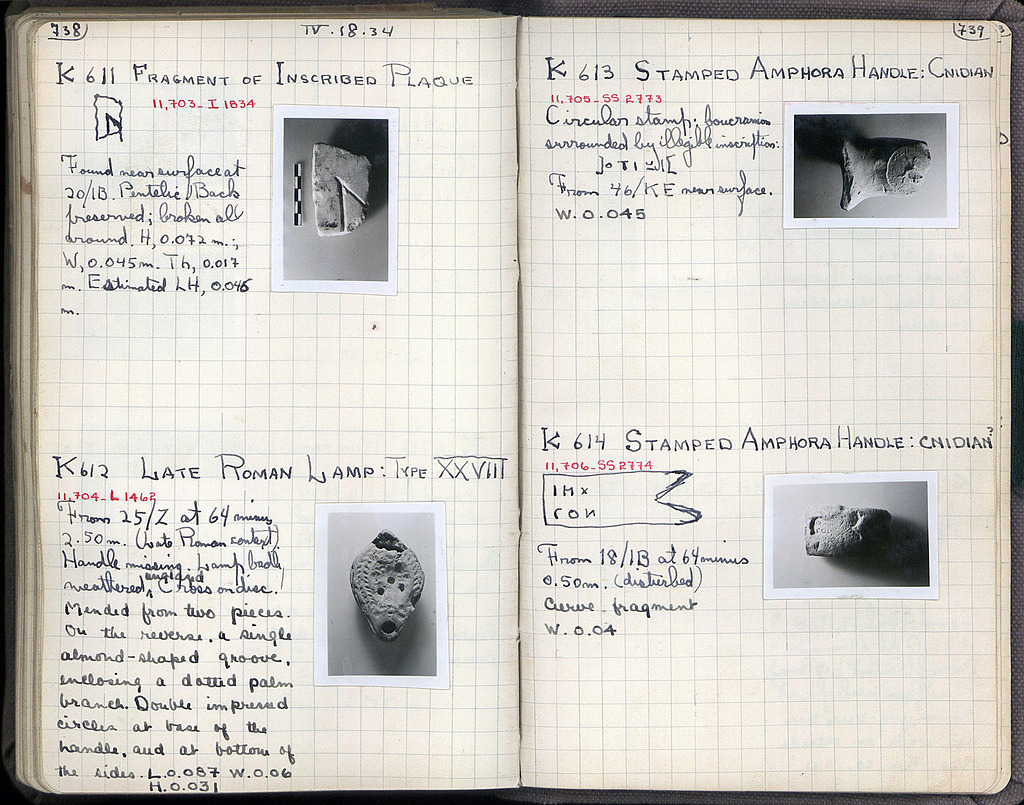 738
IV.18.34
K 611 FRAGMENT OF INSCRIBED PLAQUE
11,703-I 1834
Found near surface at
20/IB. Pentelic. Back
preserved; broken all
around. H, 0.072 m.;
W, 0.045m. Th, 0.017
m. Estimated LH, 0.045
m.
K 612 LATE ROMAN LAMP: TYPE XXVIII
11,704-L 1462
From 25/Z at 64 minus
2.50m. (late Roman context).
Handle missing. Lamp badly
weathered, Cross on disc.
Mended from two pieces.
On the reverse, a single
almond-shaped groove,
enclosing a dotted palm
branch. Double impressed
circles at base of the
handle, and at bottom of
the sides. L.0.087 W.0.06
H.0.031
739
K 613 STAMPED AMPHORA HANDLE: CNIDIAN
11,705-SS 2773
Circular stamp; boucranion
surrounded by illegible inscription:
From 46/KE near surface.
W. 0.045
K 614 STAMPED AMPHORA HANDLE: CNIDIAN?
11,706-SS 2774
From 18/IB at 64 minus
0.50m. (disturbed)
Curve fragment
W. 0.04